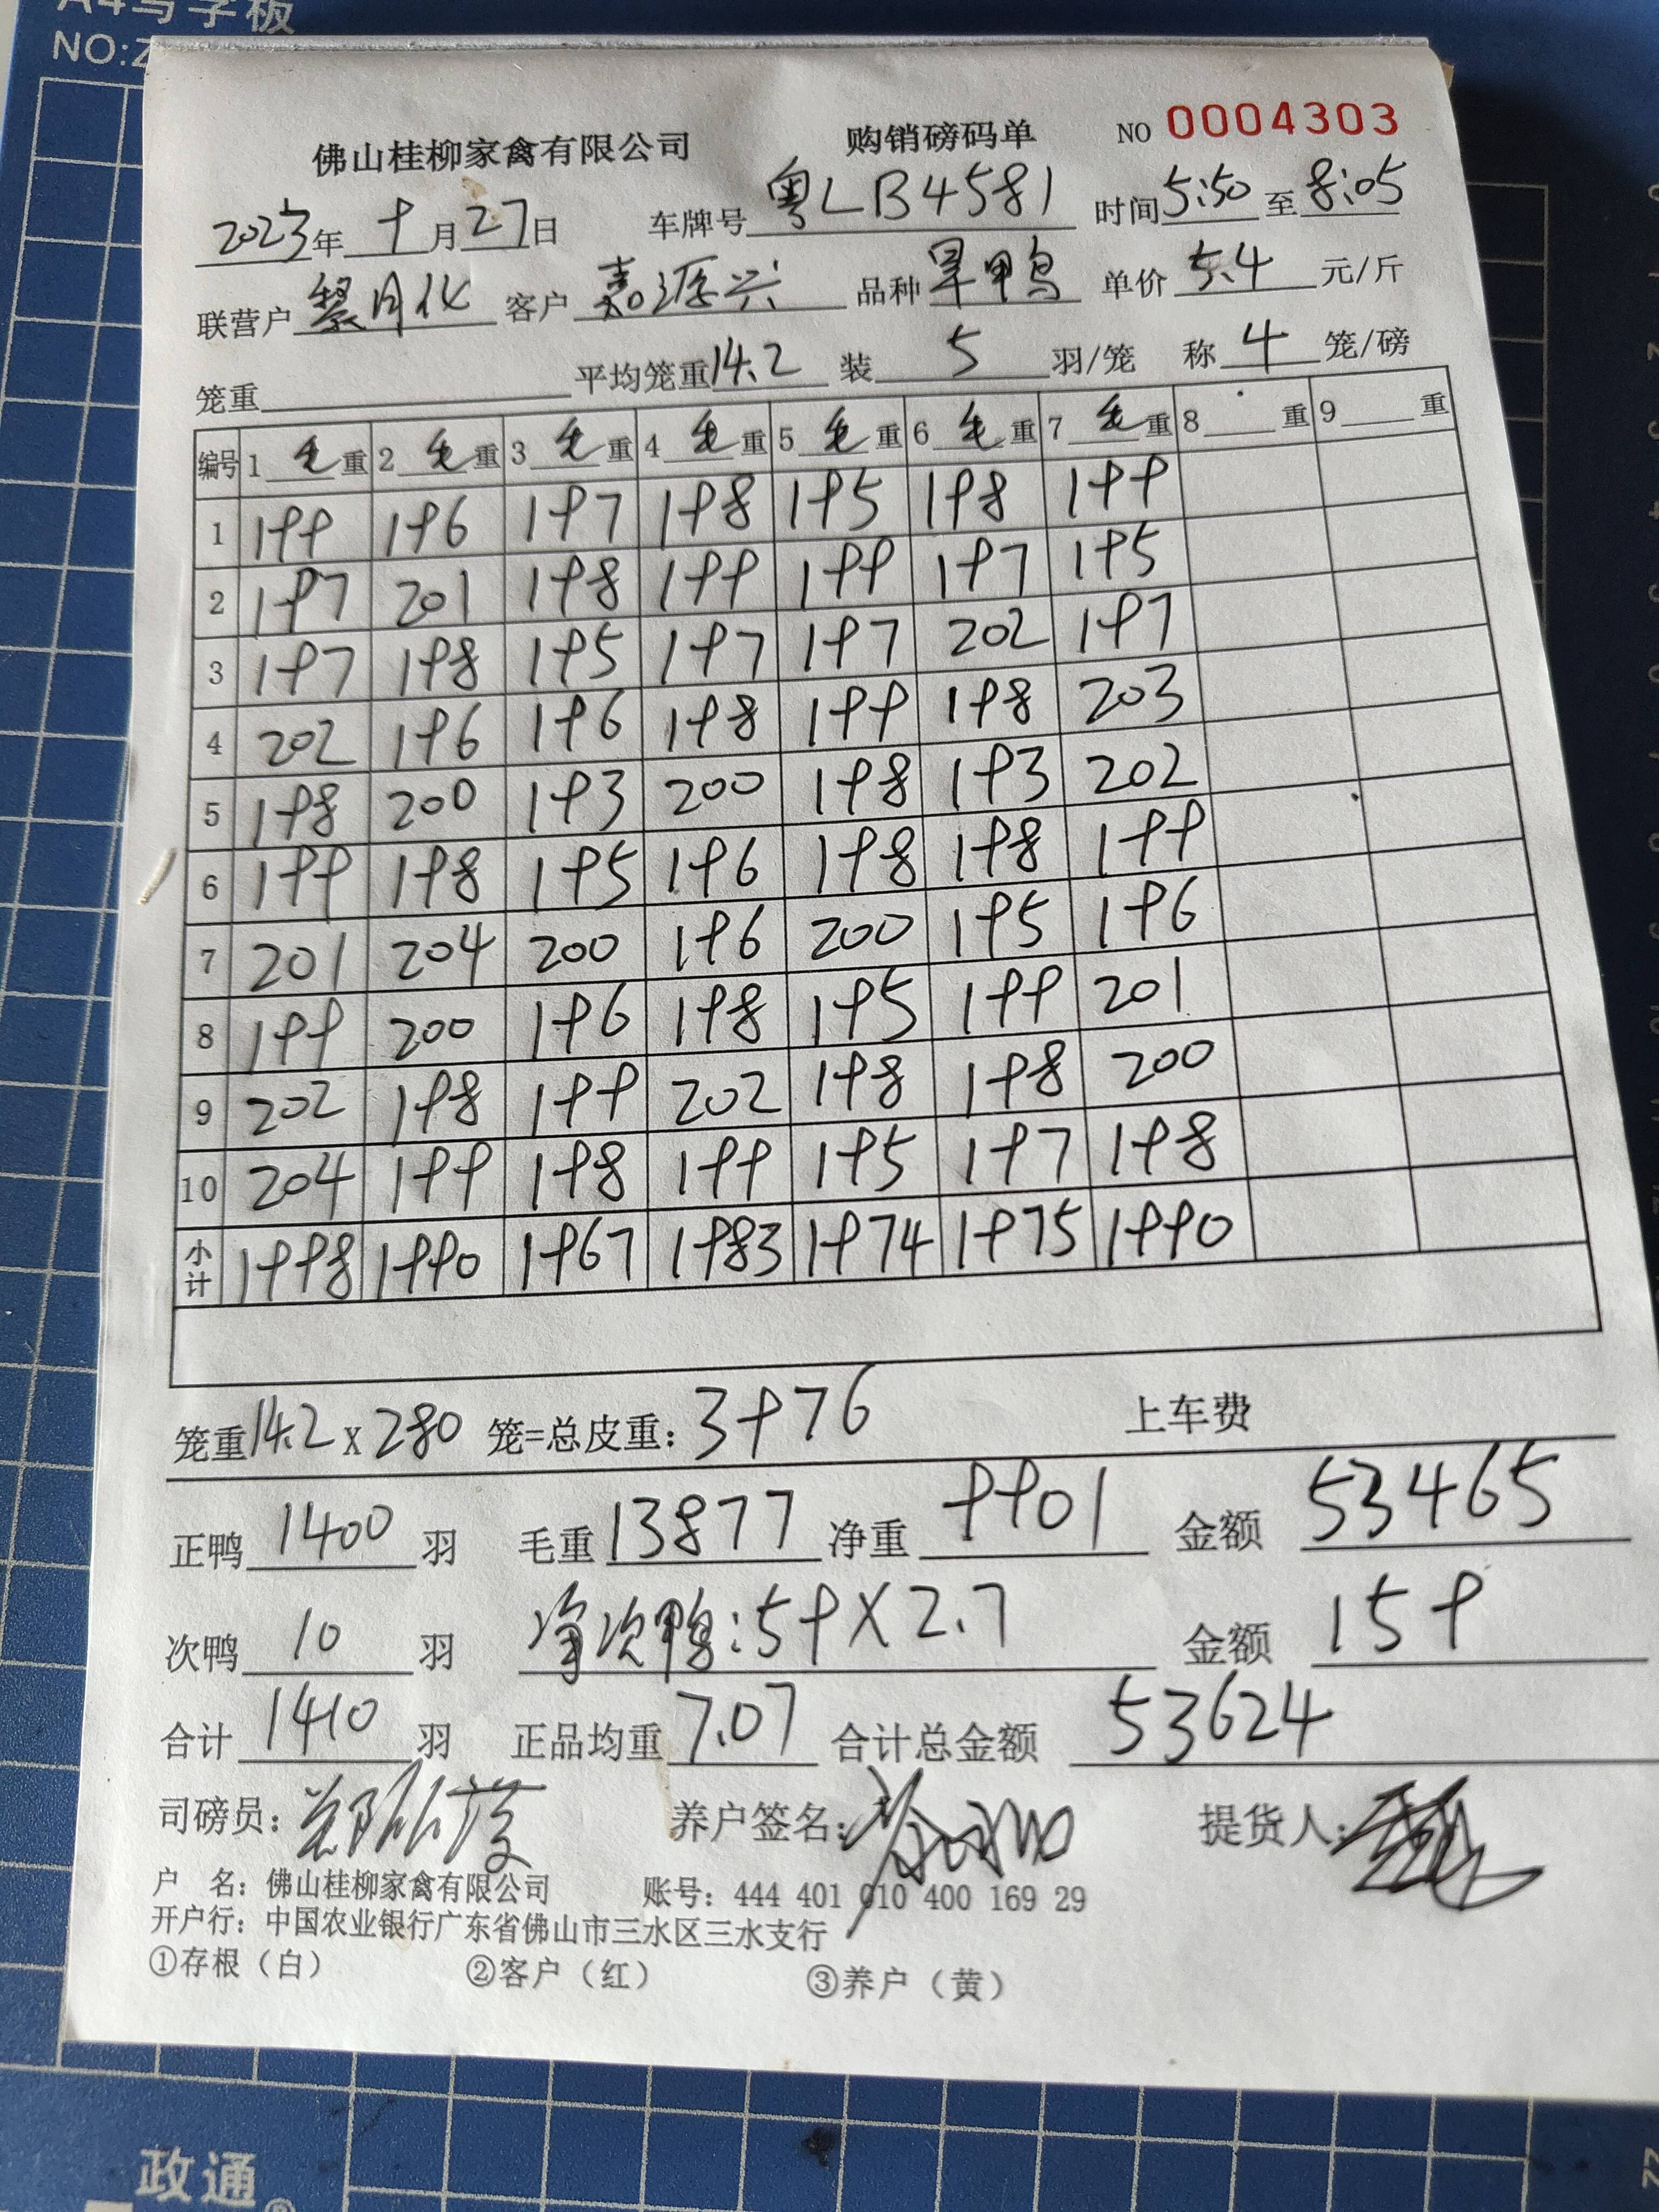 A4写字板
NO:Z
佛山桂柳家禽有限公司 购销磅码单 NO 0004303
2023年 十月27日 车牌号 粤LB4581 时间5:50至8:05
联营户 黎月化 客户 嘉源兴 品种 旱鸭 单价 5.4 元/斤
笼重 平均笼重14.2 装 5 羽/笼 称 4 笼/磅
编号 1 毛重 2 毛重 3 毛重 4 毛重 5 毛重 6 毛重 7 毛重 8 重 9 重
1 199 196 197 198 195 198 199
2 197 201 198 199 199 197 195
3 197 198 195 197 197 202 197
4 202 196 196 198 199 198 203
5 198 200 193 200 198 193 202
6 199 198 195 196 198 198 199
7 201 204 200 196 200 195 196
8 199 200 196 198 195 199 201
9 202 198 199 202 198 198 200
10 204 199 198 199 195 197 198
小计 1998 1990 1967 1983 1974 1975 1990
笼重14.2 x 280 笼=总皮重: 3976 上车费
正鸭 1400 羽 毛重 13877 净重 9901 金额 53465
次鸭 10 羽 净次鸭:59X2.7 金额 159
合计 1410 羽 正品均重 7.07 合计总金额 53624
司磅员: 养户签名: 提货人:
户 名: 佛山桂柳家禽有限公司 账号: 444 401 010 400 169 29
开户行: 中国农业银行广东省佛山市三水区三水支行
①存根（白） ②客户（红） ③养户（黄）
政通®